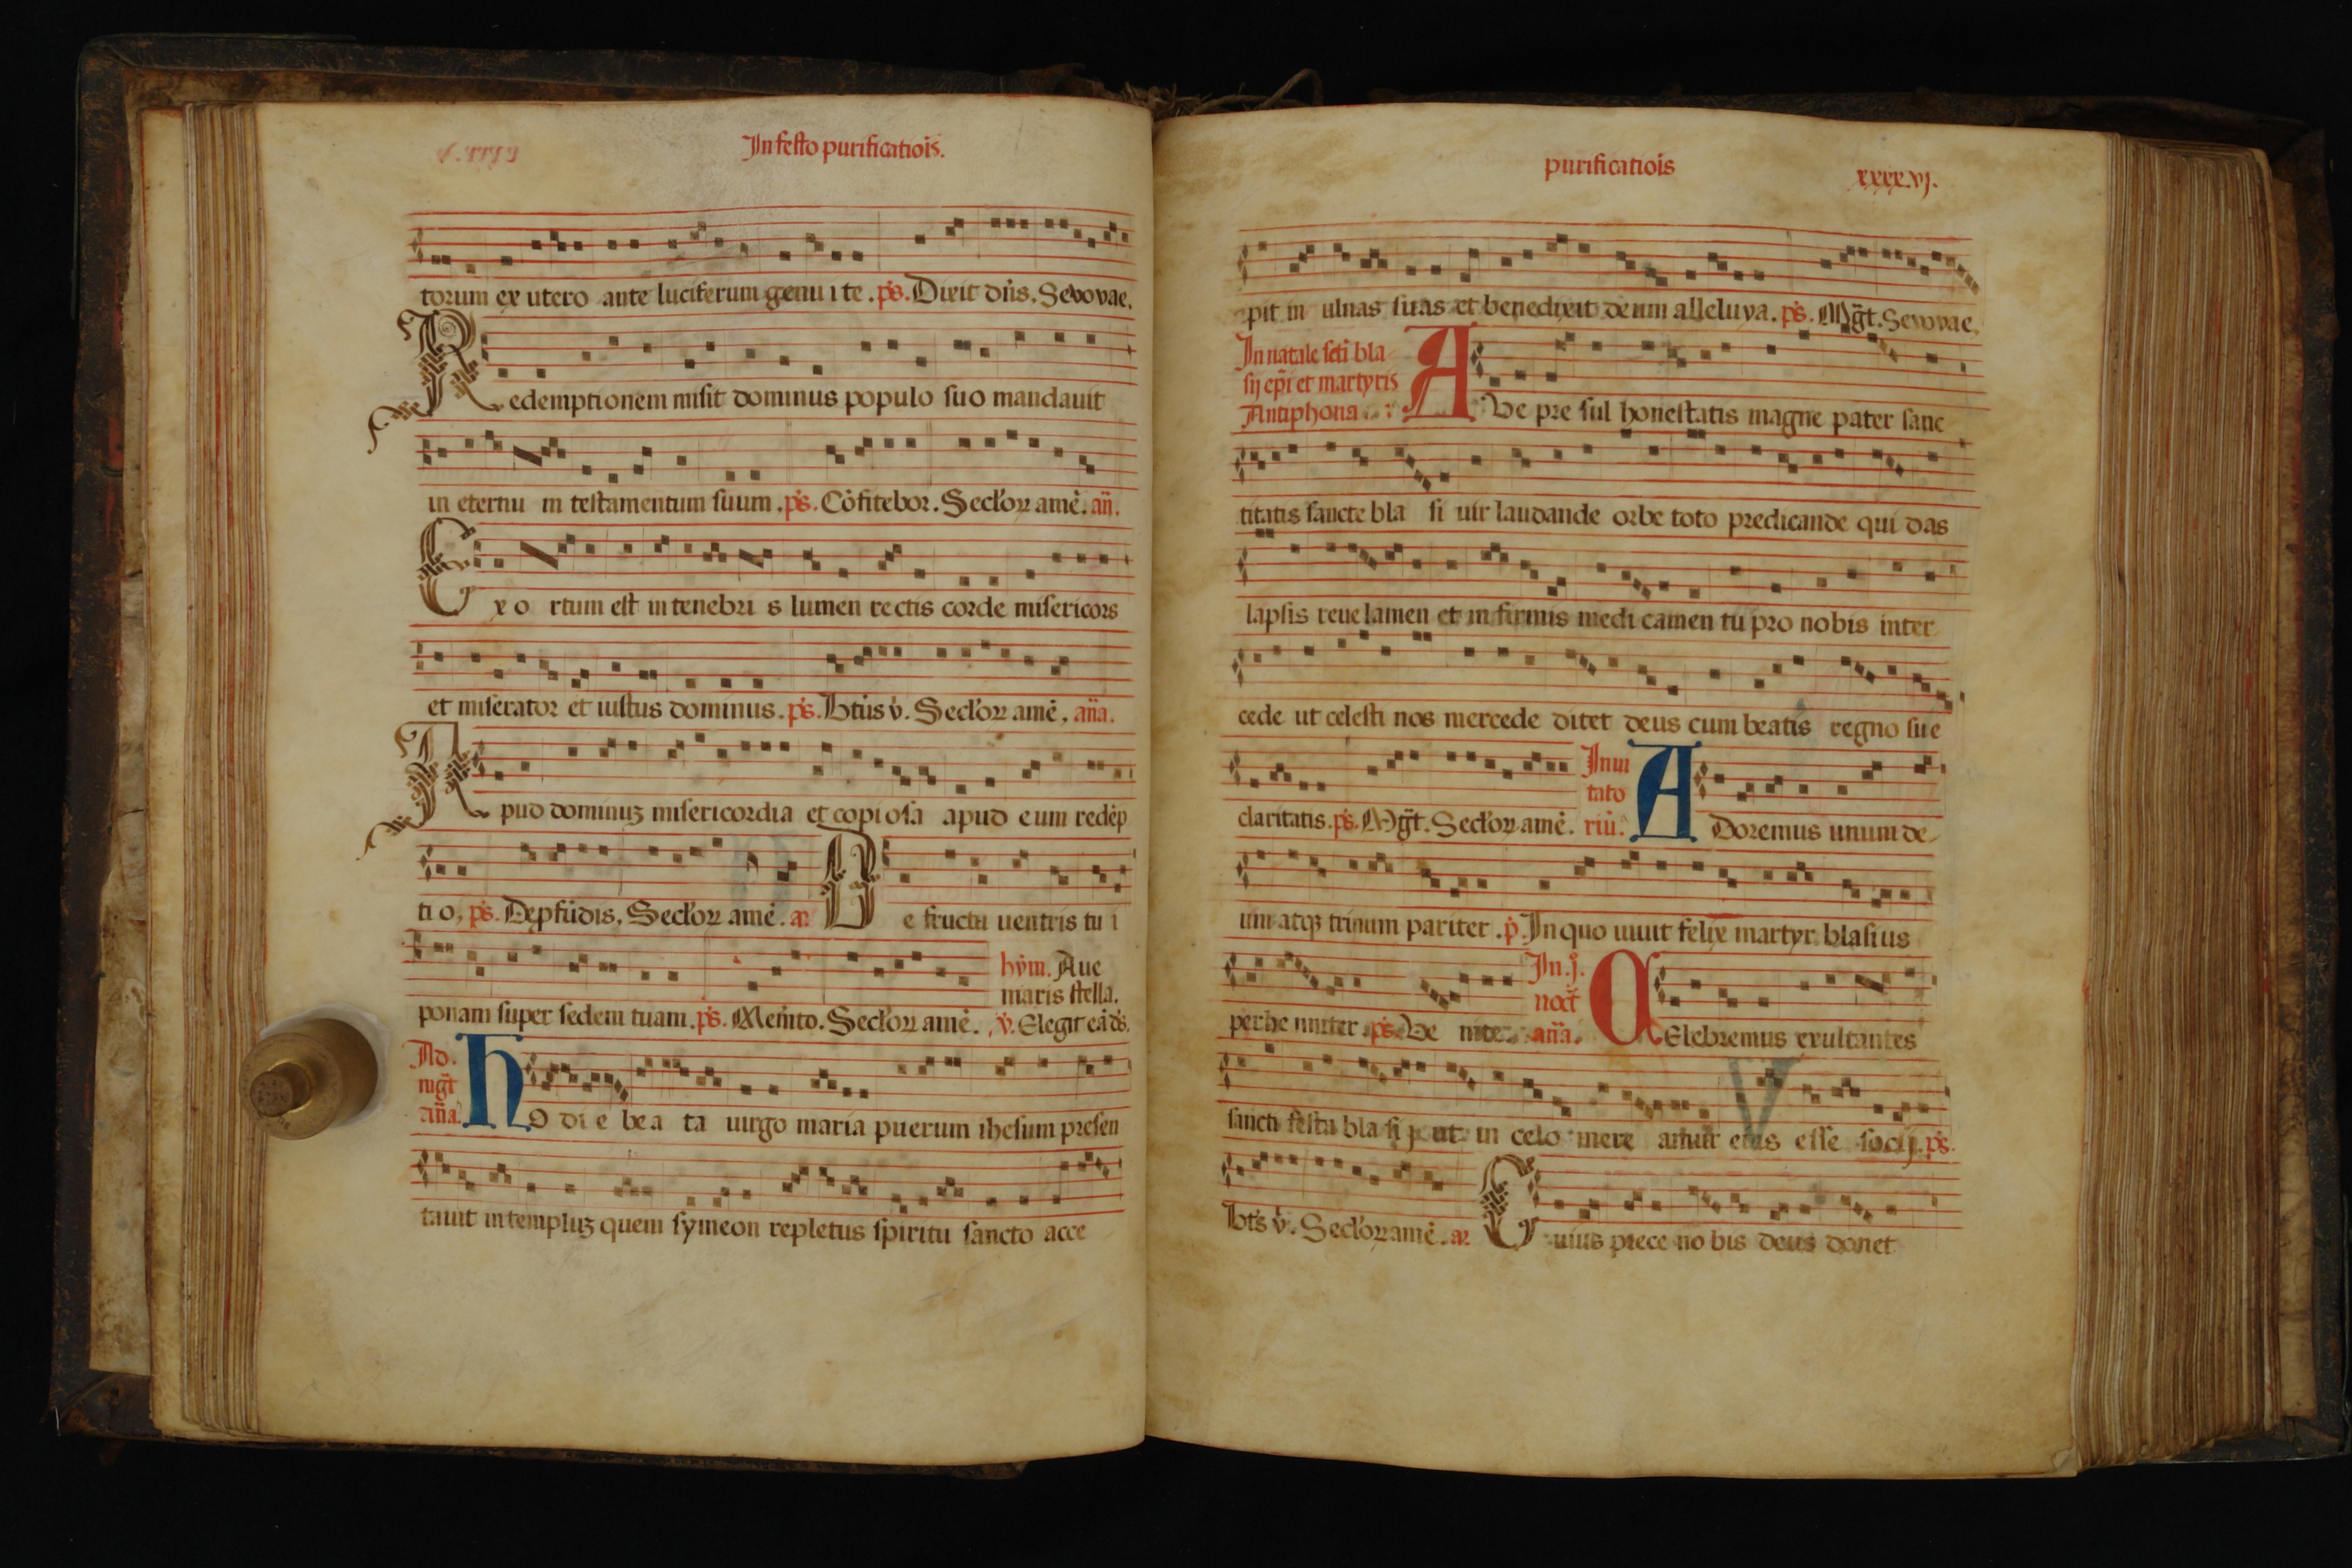 In festo purificatiõis.
torum ex utero ante luciferum genu i te. p̃s. Dixit dñs. Sevovae.
Redemptionem misit dominus populo suo mandauit
in eternu m testamentum suum. p̃s. Cõfitebor. Seclõꝝ amẽ. añ.
Exo rtum est in tenebri s lumen rectis corde misericors
et miserator et iustus dominus. p̃s. Btũs v̇. Seclõꝝ amẽ, aña.
Apud dominuꝫ misericordia et copiosa apud eum redẽp
ti o, p̃s. De ꝓfũdis, Seclõꝝ amẽ. a. De fructu uentris tu i
hỹm. Aue
maris stella.
ponam super sedem tuam. p̃s. Memẽto. Seclõꝝ amẽ. v̇. Elegit eã dš.
Ad.
mgt̃
aña.
Ho di e be a ta uirgo maria puerum ihesum presen
tauit in templuꝫ quem symeon repletus spiritu sancto acce
purificatiõis
xxxx.vj.
pit in ulnas suas et benedixit deum alleluya. p̃s. Mg̃t. Sevovae.
In natale scti bla
sij ep̃i et martyris
Antiphona
Ave pre sul honestatis magne pater sanc
titatis sancte bla si uir laudande orbe toto predicande qui das
lapsis reuelamen et in firmis medi camen tu pro nobis inter
cede ut celesti nos mercede ditet deus cum beatis regno sue
claritatis. p̃s. Mg̃t. Seclõꝝ amẽ.
Inui
tato
riũ.
Adoremus unum de
um atqꝫ trinum pariter. p̃. In quo uiuit felix martyr blasius
perhe nniter. p̃s. Ve nite.
In .j.
noct̃
aña.
Celebremus exultantes
sancti festa bla si j ut in celo mere amur eius esse socij. p̃s.
Bts̃ v̇. Seclõꝝ amẽ. a. Cuius prece no bis deus donet